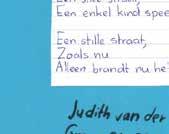 Een enkel kind spee
Een stille straat,
Zoals nu
Alleen brandt nu he
Judith van der